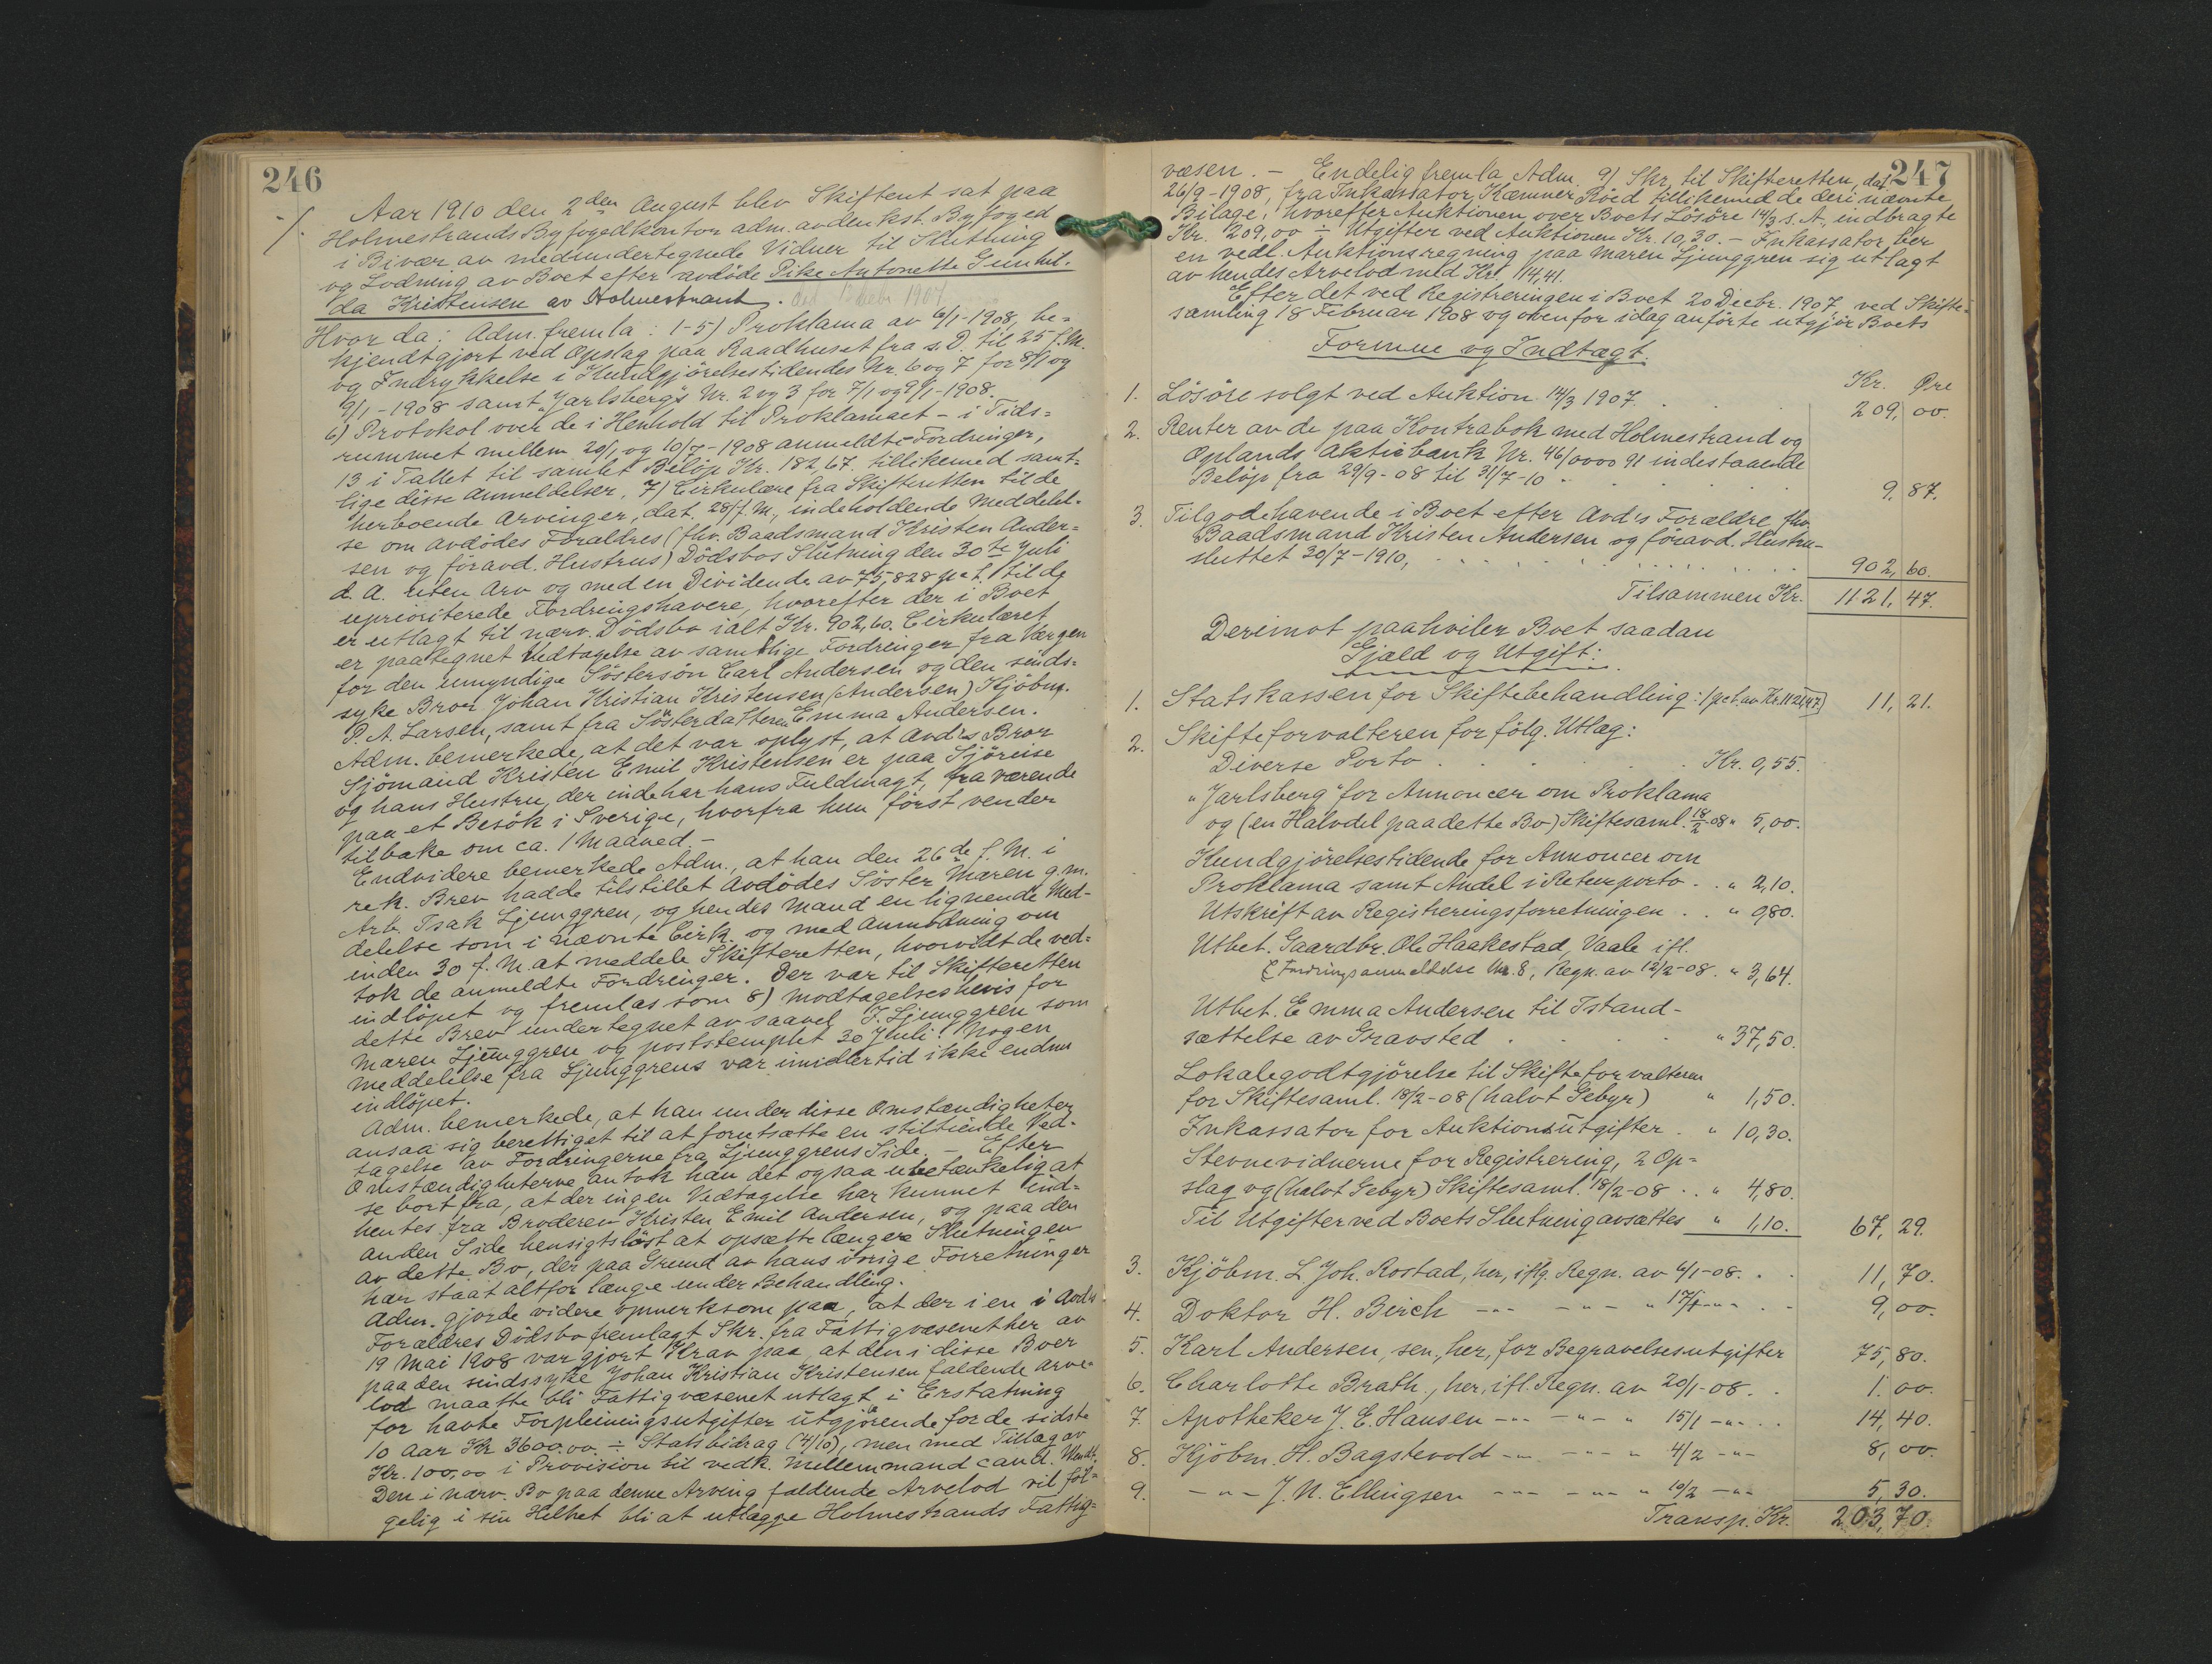 246
Aar 1910 den 2den August blev Skifteret sat paa
Holmestrands Byfogedkontor adm. av den kst. Byfoged
i Bivær av medundertegnede Vidner til Slutning
og Lodning av Boet efter avdöde Pike Antonette Gunhil-
da Kristensen av Holmestrand. 1907
Hvor da: Adm. fremla: 1-5) Proklama av 6/1-1908, be-
kjendtgjort ved Opslag paa Raadhuset fra s. D. til 25 f. M.
og Indrykkelse i Kundgjörelsestidendes Nr. 6 og 7 for 8/1 og
9/1-1908 samt "Jarlsberg's Nr. 2 og 3 for 7/1 og 9/1-1908.
6) Protokol over de i Henhold til Proklamaet - i Tids-
rummet mellem 20/1 og 10/7-1908 anmeldte Fordringer,
13 i Tallet til samlet Belöp Kr. 182,67. tillikemed samt-
lige disse Anmeldelser. 7) Cirkulære fra Skifteretten til de
herboende Arvinger, dat. 28/f. M., indeholdende Meddelel-
se om Avdödes Forældres (fhv. Baadsmand Kristen Ander-
sen og föravd. Hustrus) Dödsbos Slutning den 30te Juli
d. A. uten Arv og med en Dividende av 75,828 pct. til de
uprioriterede Fordringshavere, hvorefter der i Boet
er utlagt til nærv. Dödsbo ialt Kr. 902,60. Cirkulæret
er paategnet Vedtagelse av samtlige Fordringer fra Værgen
for den umyndige Söstersön Carl Andersen og den sinds-
syke Bror Johan Kristian Kristensen (Andersen) Kjöbm.
P. A. Larsen, samt fra Sösterdatteren Emma Andersen.
Adm. bemerkede, at det var oplyst, at Avd's Bror
Sjömand Kristen Emil Kristensen er paa Sjöreise
og hans Hustru, der indehar hans Fuldmagt, fraværende
paa et Besök i Sverige, hvorfra hun först vender
tilbake om ca. 1 Maaned. -
Endvidere bemerkede Adm., at han den 26de f. M. i
rek. Brev hadde tilstillet Avdödes Söster Maren g. m.
Arb. Isak Ljunggren, og hendes Mand en lignende Med-
delelse som i nævnte Cirk. og med Anmodning om
inden 30 f. M. at meddele Skifteretten, hvorvidt de ved-
tok de anmeldte Fordringer. Der var til Skifteretten
indlöpet og fremlas som 8) Modtagelsesbevis for
dette Brev undertegnet av saavel I. Ljunggren som
Maren Ljunggren og poststemplet 30 Juli. Nogen
Meddelelse fra Ljunggrens var imidlertid ikke endnu
indlöpet.
Adm. bemerkede, at han under disse Omstændigheter
ansaa sig berettiget til at forutsætte en stiltiende Ved-
tagelse av Fordringerne fra Ljunggrens Side. - Efter
Omstændigheterne antok han det ogsaa ubetænkelig at
se bort fra, at der ingen Vedtagelse har kunnet ind-
hentes fra Broderen Kristen Emil Andersen, og paa den
anden Side hensigtslöst at opsætte længere Slutningen
av dette Bo, der paa Grund av hans övrige Forretninger
har staat altfor længe under Behandling.
Adm. gjorde videre opmerksom paa, at der i en i Avd's
Forældres Dödsbo fremlagt Skr. fra Fattigvæsenet her av
19 Mai 1908 var gjort Krav paa, at den i disse Boer
paa den sindssyke Johan Kristian Kristensen faldende Arve-
lod maatte bli Fattigvæsenet utlagt i Erstatning
for havte Forpleiningsutgifter utgjörende for de sidste
10 Aar Kr 3600.00. ÷ Statsbidrag (4/10), men med Tillæg av
Kr. 100,00 i Provision til vedk. Mellemmand cand.
Den i nærv. Bo paa denne Arving faldende Arvelod vil föl-
gelig i sin Helhet bli at utlægge Holmestrands Fattig-
247
væsen. - Endelig fremla Adm. 9) Skr. til Skifteretten, dat.
26/9-1908, fra Inkassator, Kæmner Röed tillikemed de deri nævnte
Bilage, hvorefter Auktionen over Boets Lösöre 14/3 s. A. indbragte
Kr. 209,00 ÷ Utgifter ved Auktionen Kr. 10,30. - Inkassator ber
en vedl. Auktionsregning paa Maren Ljunggren sig utlagt
av hendes Arvelod med Kr. 14,41.
Efter det ved Registreringen i Boet 20 Decbr. 1907, ved Skifte-
samling 18 Februar 1908 og ovenfor idag anförte utgjör Boets
Formue og Indtægt.
Kr. Öre
1. Lösöre solgt ved Auktion 14/3 1907. 209,00.
2. Renter av de paa Kontrabok med Holmestrand og
Oplands Aktiebank Nr. 46/0000 91 indestaaende
Belöp fra 29/9-08 til 31/7-10 9,87.
3. Tilgodehavende i Boet efter Avd's Forældre, fhv.
Baadsmand Kristen Andersen og föravd. Hustru -
sluttet 30/7-1910, 902,60.
Tilsammen Kr. 1121,47.
Derimot paahviler Boet saadan
Gjæld og Utgift:
1. Statskassen for Skiftebehandling: 1 pct. av Kr. 1121,47.) 11,21.
2. Skifteforvalteren for fölg. Utlæg:
Diverse Porto Kr. 0,55.
"Jarlsberg" for Annoncer om Proklama
og (en Halvdel paa dette Bo) Skiftesaml. 18/2-08 " 5,00.
Kundgjörelsestidende for Annoncer om
Proklama samt Andel i Returporto. . " 2,10.
Utskrift av Registreringsforretningen . . " 0,80.
Utbet. Gaardbr. Ole Haakestad, Vaale ifl.
Fordringsanmeldelse Nr. 8, Regn. av 12/2-08. " 3,64.
Utbet. Emma Andersen til Istand-
sættelse av Gravsted " 37,50.
Lokalegodtgjörelse til Skifteforvalteren
for Skiftesaml. 18/2-08 (halvt Gebyr) " 1,50.
Inkassator for Auktionsutgifter . " 10,30.
Stevnevidnerne for Registrering, 2 Op-
slag og (halvt Gebyr) Skiftesaml. 18/2-08 . . " 4,80.
Til Utgifter ved Boets Slutning avsættes " 1,10. 67,29.
3. Kjöbm. L. Joh. Rostad, her, iflg. Regn. av 6/1-08. . 11,70.
4. Doktor H. Birch -"- -"- " 17/1 -"- . - 9,00.
5. Karl Andersen, sen., her, for Begravelsesutgifter 75,80.
6. Charlotte Brath, her, ifl. Regn. av 20/1-08. . 1.00.
7. Apotheker J. E. Hansen -"- -"- " 15/1 -"- . . 14,40.
8. Kjöbm. H. Bagstevold -"- -"- " 4/2 -"- 8,00.
9. -"- J. N. Ellingsen -"- -"- " 10/2 -"- 5,30.
Transp. Kr. 203,70.